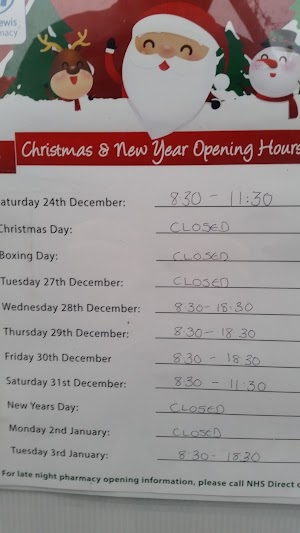 ewis
macy
Christmas & New Year Opening Hours
aturday 24th December: 8.30 - 11:30
Christmas Day: CLOSED
Boxing Day: CLOSED
Tuesday 27th December: CLOSED
Wednesday 28th December: 8.30 - 18.30
Thursday 29th December: 8.30 - 18.30
Friday 30th December 8.30 - 18.30
Saturday 31st December: 8.30 - 11.30
New Years Day: CLOSED
Monday 2nd January: CLOSED
Tuesday 3rd January: 8.30 - 18.30
For late night pharmacy opening information, please call NHS Direct o